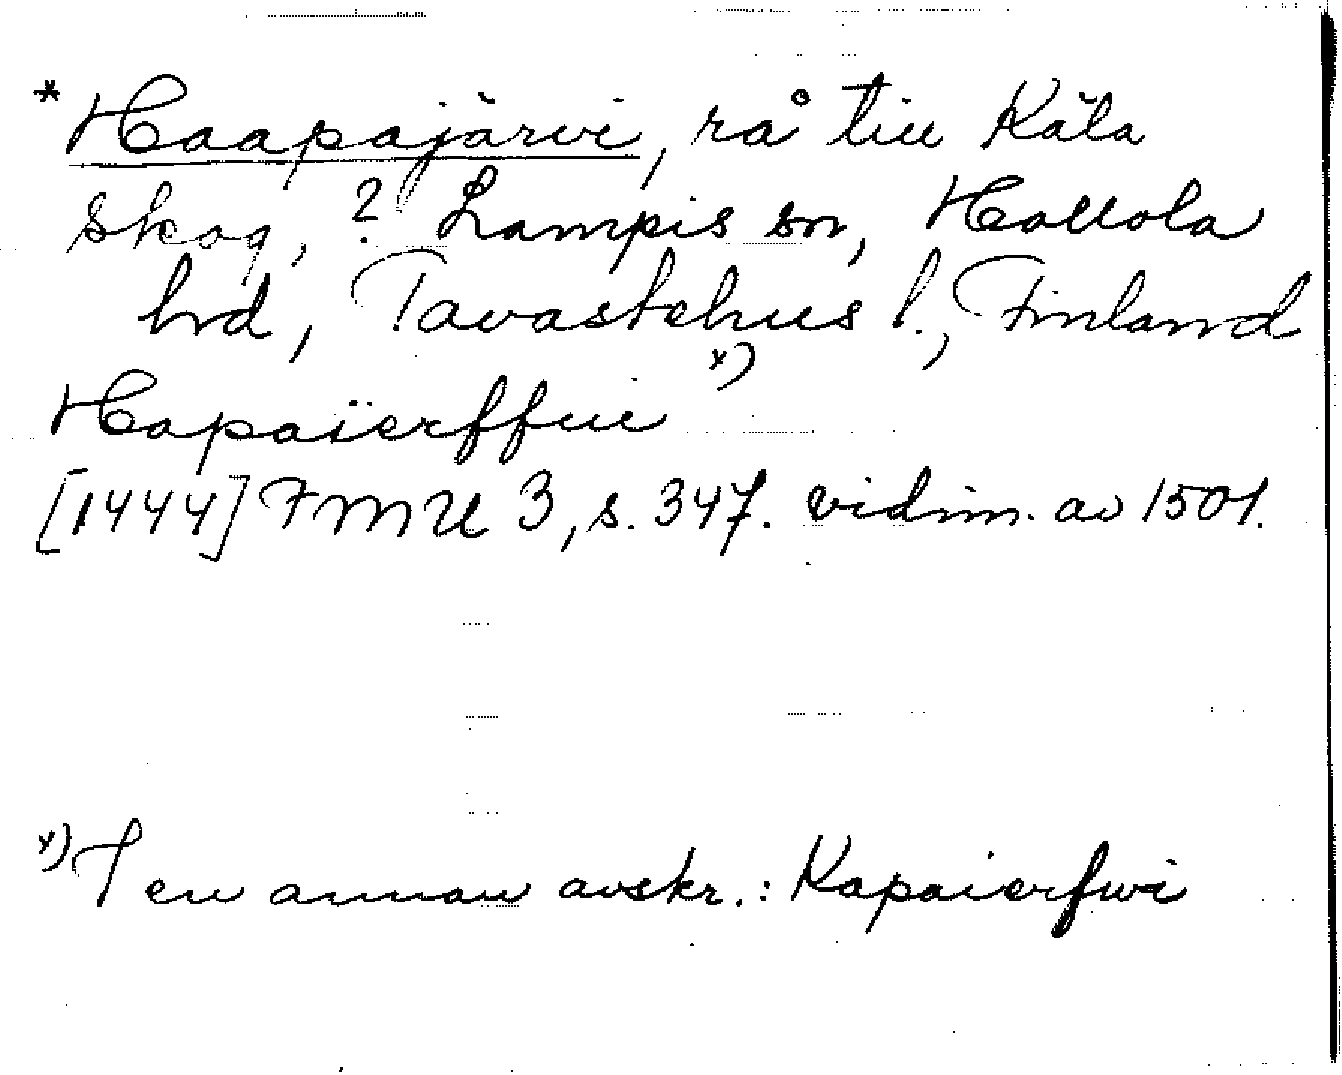 * Haapajärvi, rå till Käla
skog, ? Lampis sn, Hollola
hrd, Tavastehus l., Finland
Hapaïerffui x)
[1444] FMU 3, s. 347. vidim. av 1501.
x) I en annan avskr.: Kapaierfwi